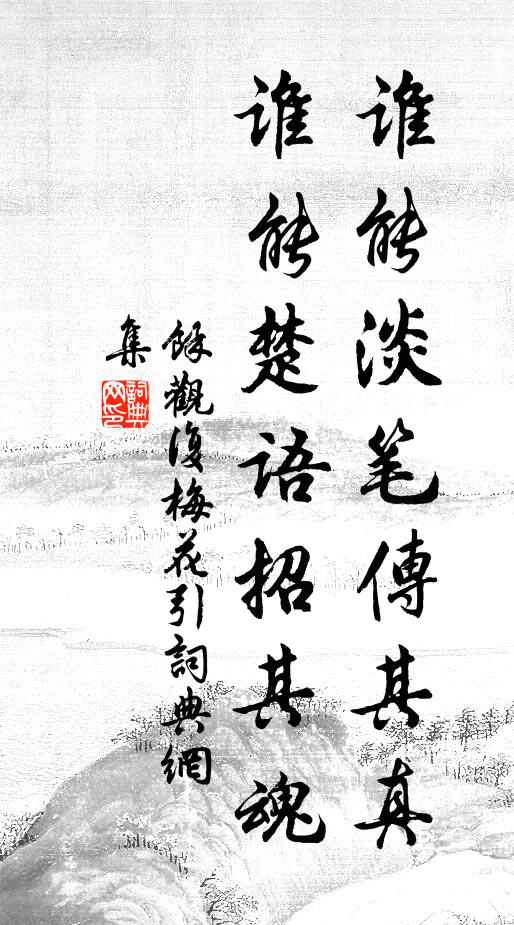 谁能淡笔傳其真
谁能楚语招其魂
餘觀復梅花引詞典網
集
詞典
网印